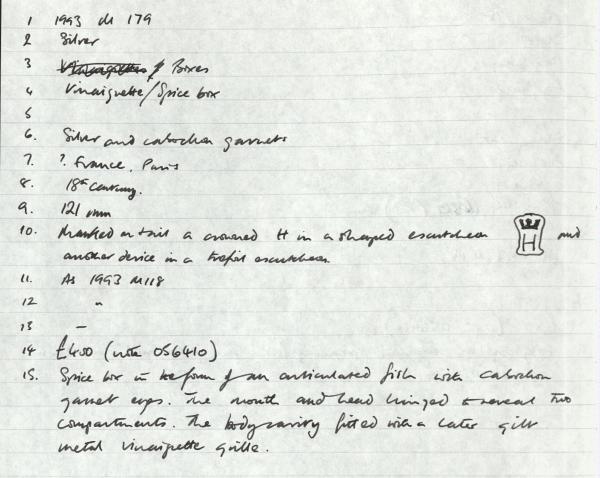 1 1993 M 179
2 Silver
3 Vinaigrettes / Boxes
4 Vinaigrette/Spice box
5
6. Silver and cabochon garnets
7. ? France, Paris
8. 18th Century.
9. 121 mm
10. Marked on tail a crowned H in a shaped escutcheon H and
another device in a trefoil escutcheon
11. As 1993 M118
12 "
13 –
14 £400 (note 056410)
15. Spice box in the form of an articulated fish with cabochon
garnet eyes. The mouth and head hinged to reveal two
compartments. The body cavity fitted with a later gilt
metal vinaigrette grille.